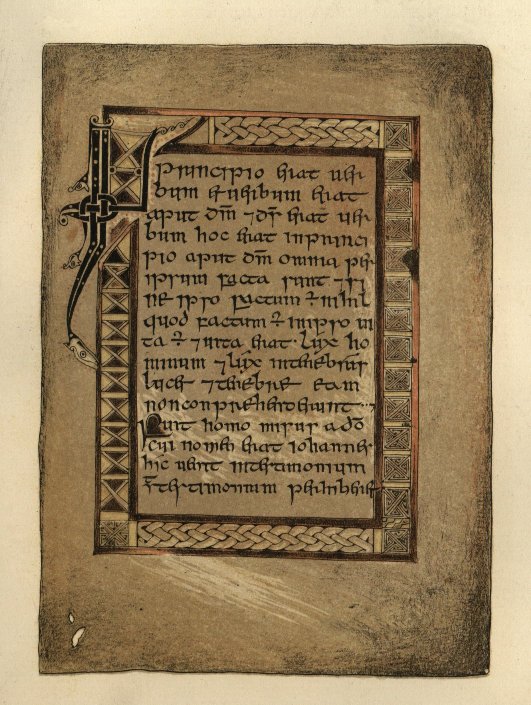 IN principio erat uer
bum et uerbum erat
aput dm̄ ⁊ ds̄ erat uer
bum hoc erat inprinci
pio aput dm̄ omnia per
ipsum facta sunt ⁊ si
ne ipso factum ÷ nihil
quod factum ÷ inipso ui
ta ÷ ⁊ uita erat lux ho
minum ⁊ lux intenebris
lucet ⁊ tenebre eam
non conprehenderunt
Fuit homo misus a dō
cui nomen erat iohannis
hic uenit intestimonium
testimonium